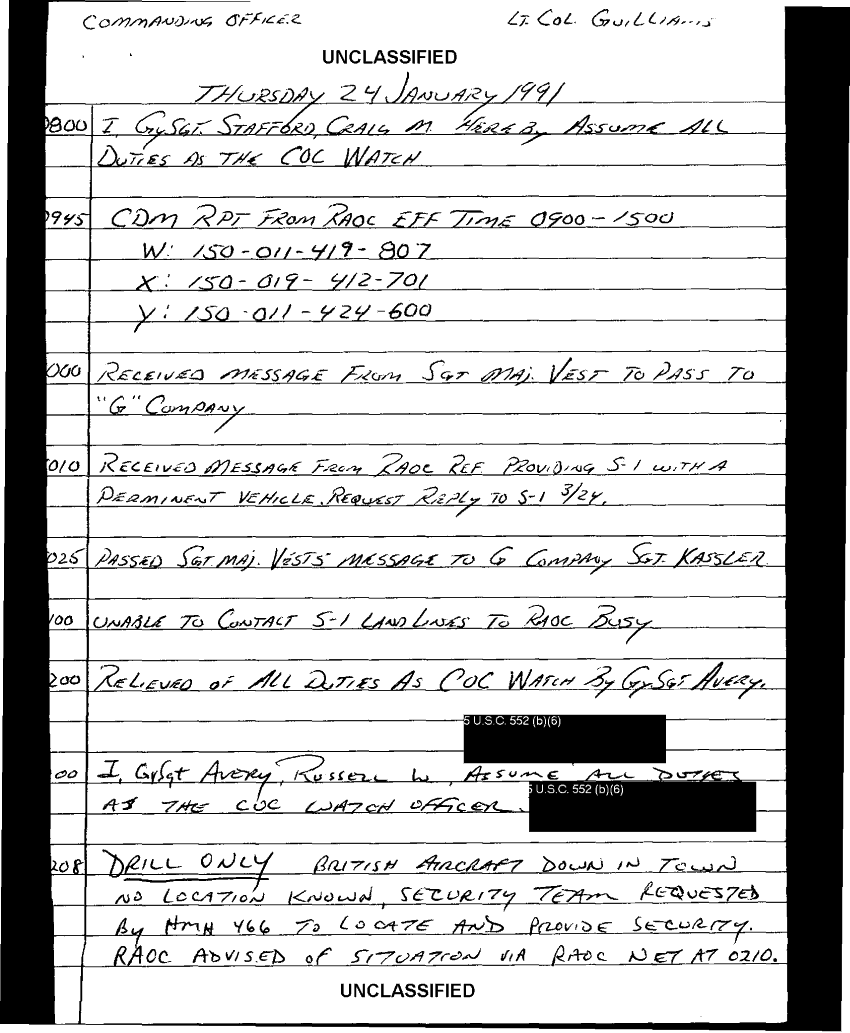 COMMANDING OFFICER LT. COL. GUILLIAMS
UNCLASSIFIED
THURSDAY 24 JANUARY 1991
0800 I, GYSGT. STAFFORD, CRAIG M. HEREBY ASSUME ALL
DUTIES AS THE COC WATCH
0945 CDM RPT FROM RAOC EFF TIME 0900-1500
W: 150-011-419-807
X: 150-019-412-701
Y: 150-011-424-600
000 RECEIVED MESSAGE FROM SGT MAJ. VEST TO PASS TO
"G" COMPANY
010 RECEIVED MESSAGE FROM RAOC REF. PROVIDING S-1 WITH A
PERMINENT VEHICLE. REQUEST REPLY TO S-1 3/24.
025 PASSED SGT. MAJ. VESTS MESSAGE TO G COMPANY SGT. KASSLER
100 UNABLE TO CONTACT S-1 LAND LINES TO RAOC BUSY
200 RELIEVED OF ALL DUTIES AS COC WATCH BY GYSGT AVERY.
5 U.S.C. 552 (b)(6)
00 I, GySgt AVERY, RUSSELL W, ASSUME ALL DUTIES
AS THE COC WATCH OFFICER.
5 U.S.C. 552 (b)(6)
208 DRILL ONLY BRITISH AIRCRAFT DOWN IN TOWN
NO LOCATION KNOWN, SECURITY TEAM REQUESTED
By HMH 466 TO LOCATE AND PROVIDE SECURITY.
RAOC ADVISED OF SITUATION VIA RAOC NET AT 0210.
UNCLASSIFIED